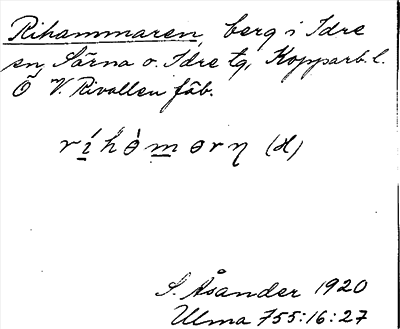 Rihammaren, berg i Idre
sn, Särna o. Idre tg, Kopparb. l.
Ö V. Rivallen fäb.
ríhòmɵrn (d)
S. Åsander 1920
Ulma 755:16:27